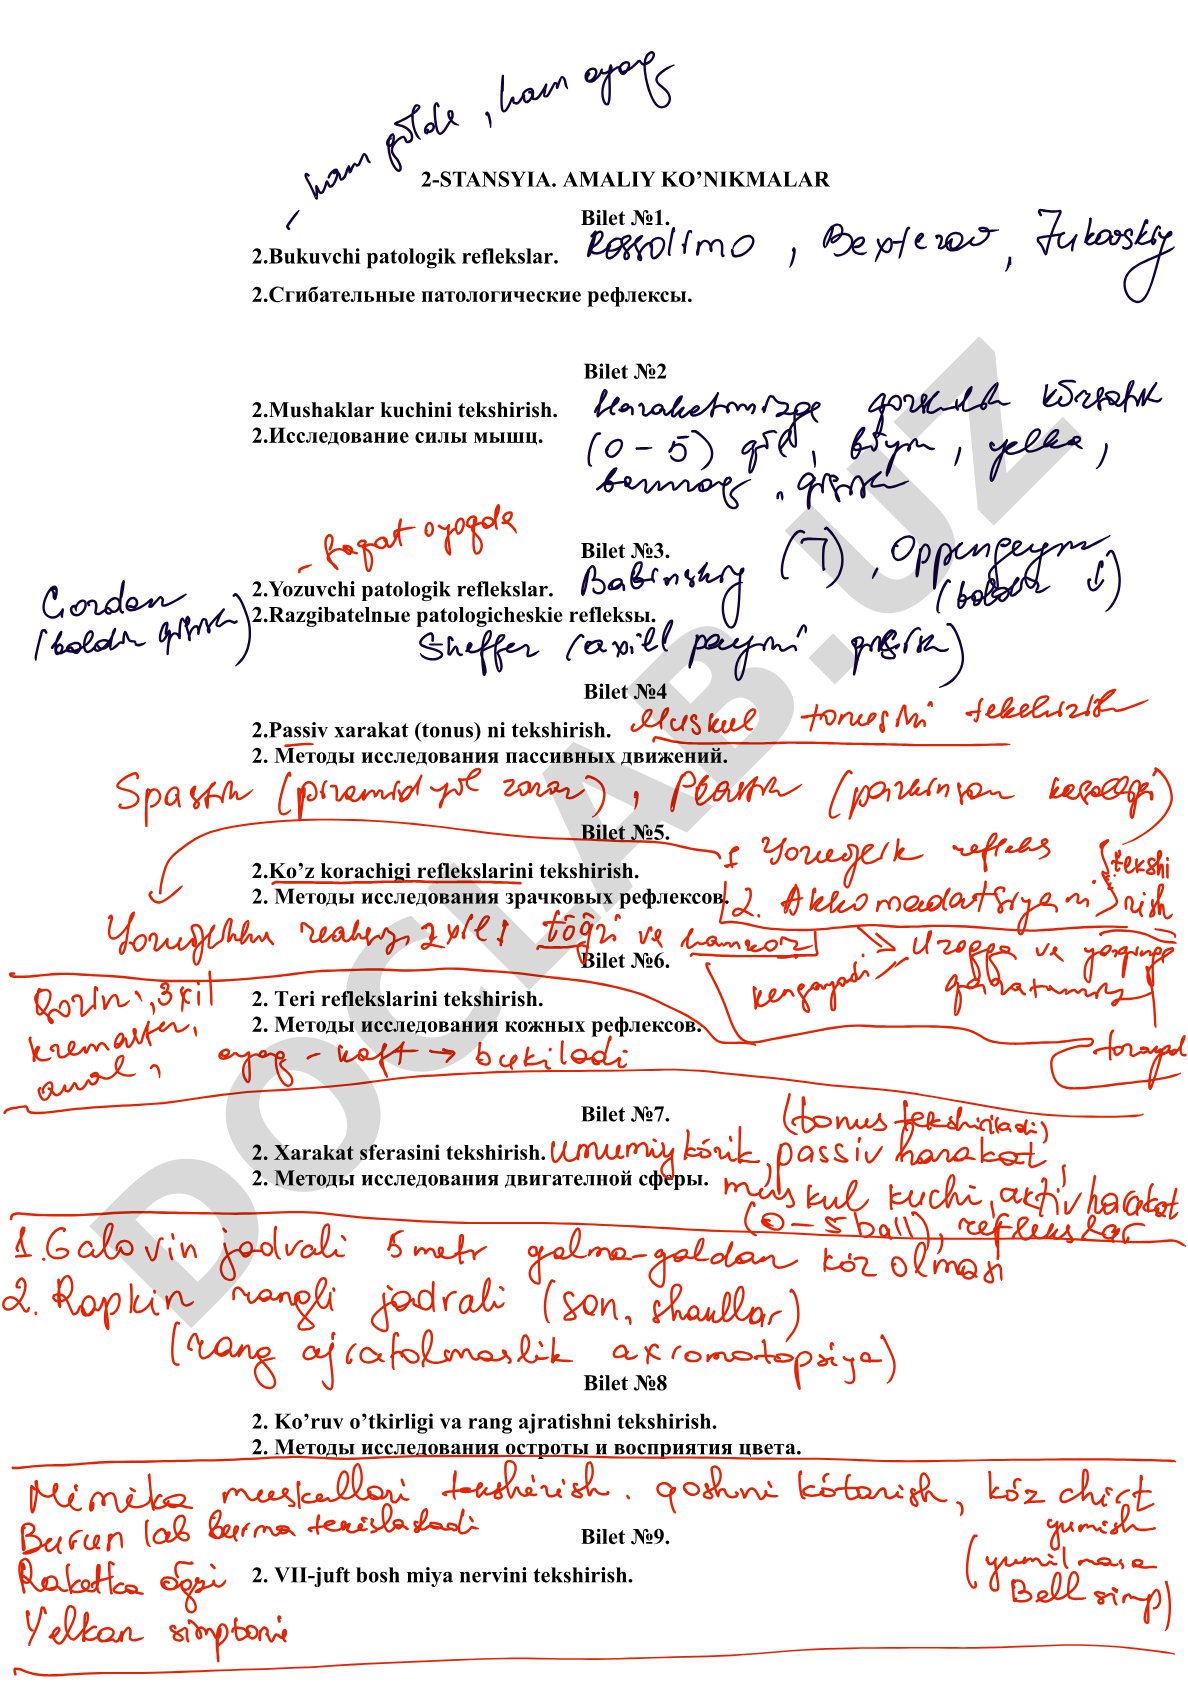 - ham qo'lda, ham oyoq
2-STANSYIA. AMALIY KO’NIKMALAR
Bilet №1.
2.Bukuvchi patologik reflekslar. Rossolimo, Bexterov, Jukovskiy
2.Сгибательные патологические рефлексы.
Bilet №2
2.Mushaklar kuchini tekshirish. Harakatimizga qarshilik ko'rsatish
2.Исследование силы мышц. (0-5) qo'l, bo'yin, yelka,
barmoq,
- faqat oyoqda
Bilet №3.
2.Yozuvchi patologik reflekslar. Babinskiy (7), Oppengeym
2.Razgibatelnыe patologicheskie refleksы. (boldir ↓)
Gordon
(boldir qisish)
Sheffer (axill payini qisish)
Bilet №4
2.Passiv xarakat (tonus) ni tekshirish. Muskul tonusini tekshirish
2. Методы исследования пассивных движений.
Spastik (piramid yo'l zarar), Plastik (parkinson kasalligi)
Bilet №5.
1 Yorug'lik refleks
2. Akkomadatsiyani
tekshi
rish
2.Ko’z korachigi reflekslarini tekshirish.
2. Методы исследования зрачковых рефлексов.
2 xil: to'g'ri va hamkor
Uzoqqa va yaqinga
qaratamiz
kengayadi
torayad
Bilet №6.
2. Teri reflekslarini tekshirish.
2. Методы исследования кожных рефлексов.
Qorin:, 3xil
kremaster,
anal,
oyoq - kaft → bukiladi
Bilet №7.
(tonus tekshiriladi)
2. Xarakat sferasini tekshirish. Umumiy kórik, passiv harakat,
2. Методы исследования двигателной сферы. muskul kuchi, aktiv harakat
(0-5 ball), reflekslar
1. Galovin jadvali 5 metr galma-galdan kóz olmasi
2. Rapkin rangli jadvali (son, shakllar)
(rang ajratolmaslik axromotopsiya)
Bilet №8
2. Ko’ruv o’tkirligi va rang ajratishni tekshirish.
2. Методы исследования остроты и восприятия цвета.
Mimika muskullari tekshirish. qoshni kótarish, kóz chirt
yumish
(yumilmasa
Bell simp)
Burun lab burma tekislashadi
Bilet №9.
Raketka og'zi
2. VII-juft bosh miya nervini tekshirish.
Yelkan simptomi
DOCLAB.UZ